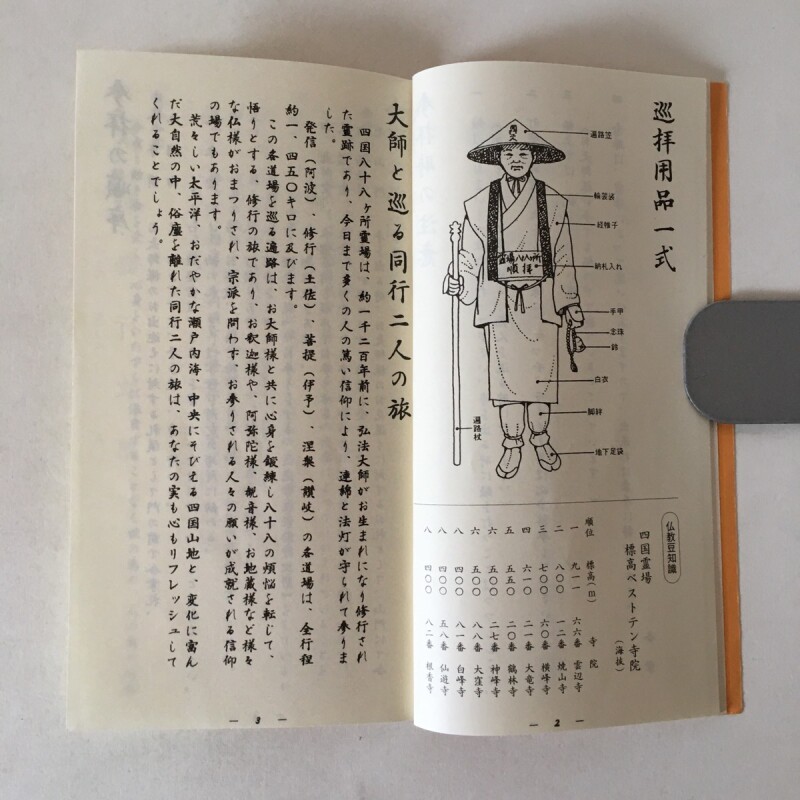 巡拝用品一式
遍路笠
輪袈裟
経帷子
納札入れ
霊場八八ヶ所
順拝
手甲
念珠
鈴
白衣
脚絆
地下足袋
遍路杖
仏教豆知識
四国霊場
標高ベストテン寺院
(海抜)
順位 標高(m) 寺院
一 九一一 六六番 雲辺寺
二 八〇〇 一二番 焼山寺
三 七〇〇 六〇番 横峰寺
四 六一〇 二一番 大竜寺
五 五五〇 二〇番 鶴林寺
六 五〇〇 二七番 神峰寺
六 五〇〇 八八番 大窪寺
八 四〇〇 八一番 白峰寺
八 四〇〇 五八番 仙遊寺
八 四〇〇 八二番 根香寺
— 2 —
大師と巡る同行二人の旅
四国八十八ヶ所霊場は、約一千二百年前に、弘法大師がお生まれになり修行され
た霊跡であり、今日まで多くの人の篤い信仰により、連綿と法灯が守られて参りま
した。
発信(阿波)、修行(土佐)、菩提(伊予)、涅槃(讃岐)の各道場は、全行程
約一、四五〇キロに及びます。
この各道場を巡る遍路は、お大師様と共に心身を鍛練し八十八の煩悩を転じて、
悟りとする、修行の旅であり、お釈迦様や、阿弥陀様、観音様、お地蔵様など様々
な仏様がおまつりされ、宗派を問わず、お参りされる人々の願いが成就される信仰
の場でもあります。
荒々しい太平洋、おだやかな瀬戸内海、中央にそびえる四国山地と、変化に富ん
だ大自然の中、俗塵を離れた同行二人の旅は、あなたの実も心もリフレッシュして
くれることでしょう。
— 3 —